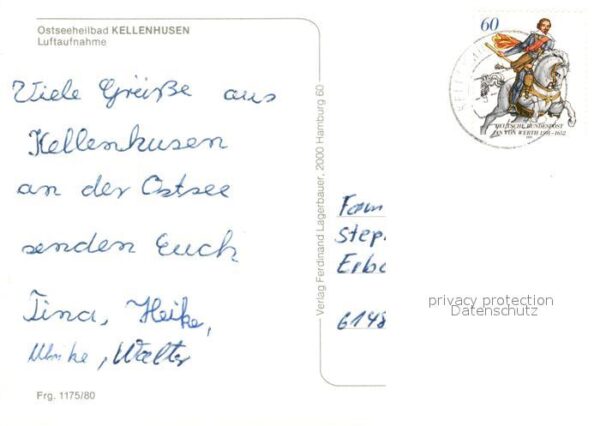 Ostseeheilbad KELLENHUSEN
Luftaufnahme
Viele Grüße aus
Kellenhusen
an der Ostsee
senden Euch
Tina, Heike,
Ulrike, Walter
Frg. 1175/80
Verlag Ferdinand Lagerbauer, 2000 Hamburg 60
60
DEUTSCHE BUNDESPOST
JAN VON WERTH 1591-1652
Fam
Step
Erb
6148
privacy protection
Datenschutz